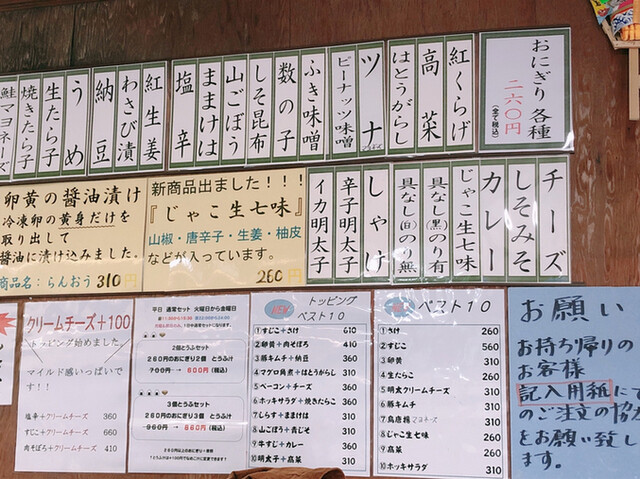 おにぎり 各種
二六〇円
(全て税込)
紅くらげ
高菜
はとうがらし
ツナ
ピーナッツ味噌
ふき味噌
数の子
しそ昆布
山ごぼう
ままけは
塩辛
紅生姜
わさび漬
納豆
うめ
生たらこ
焼きたらこ
鮭マヨネーズ
チーズ
しそみそ
カレー
じゃこ生七味
具なし(黒)のり有
具なし(白)のり無
しゃけ
辛子明太子
イカ明太子
新商品出ました!!!
『じゃこ生七味』
山椒・唐辛子・生姜・柚皮
などが入っています。
260円
卵黄の醤油漬け
冷凍卵の黄身だけを
取り出して
醤油に漬け込みました。
商品名:らんおう 310円
クリームチーズ+100
トッピング始めました
マイルド感いっぱいで
す!!
塩辛+クリームチーズ 360
すじこ+クリームチーズ 660
肉そぼろ+クリームチーズ 410
平日 通常セット 火曜日から金曜日
2個とうふセット
260円のおにぎり2個 とうふ汁
700円→600円(税込)
3個とうふセット
260円のおにぎり3個 とうふ汁
960円→860円(税込)
トッピング
ベスト10
①すじこ+さけ 610
②卵黄+肉そぼろ 410
③豚キムチ+納豆 360
④マグロ角煮+はとうがらし 310
⑤ベーコン+チーズ 360
⑥ホッキサラダ+焼きたらこ 360
⑦しらす+ままけは 310
⑧山ごぼう+青じそ 310
⑨牛すじ+カレー 360
⑩明太子+高菜 310
ベスト10
①さけ 260
②すじこ 560
③卵黄 310
④生たらこ 260
⑤明太クリームチーズ 310
⑥豚キムチ 310
⑦鳥唐揚マヨネーズ 310
⑧じゃこ生七味 260
⑨高菜 260
⑩ホッキサラダ 310
お願い
お持ち帰りの
お客様
記入用紙にて
のご注文の協力
をお願い致し
ます。